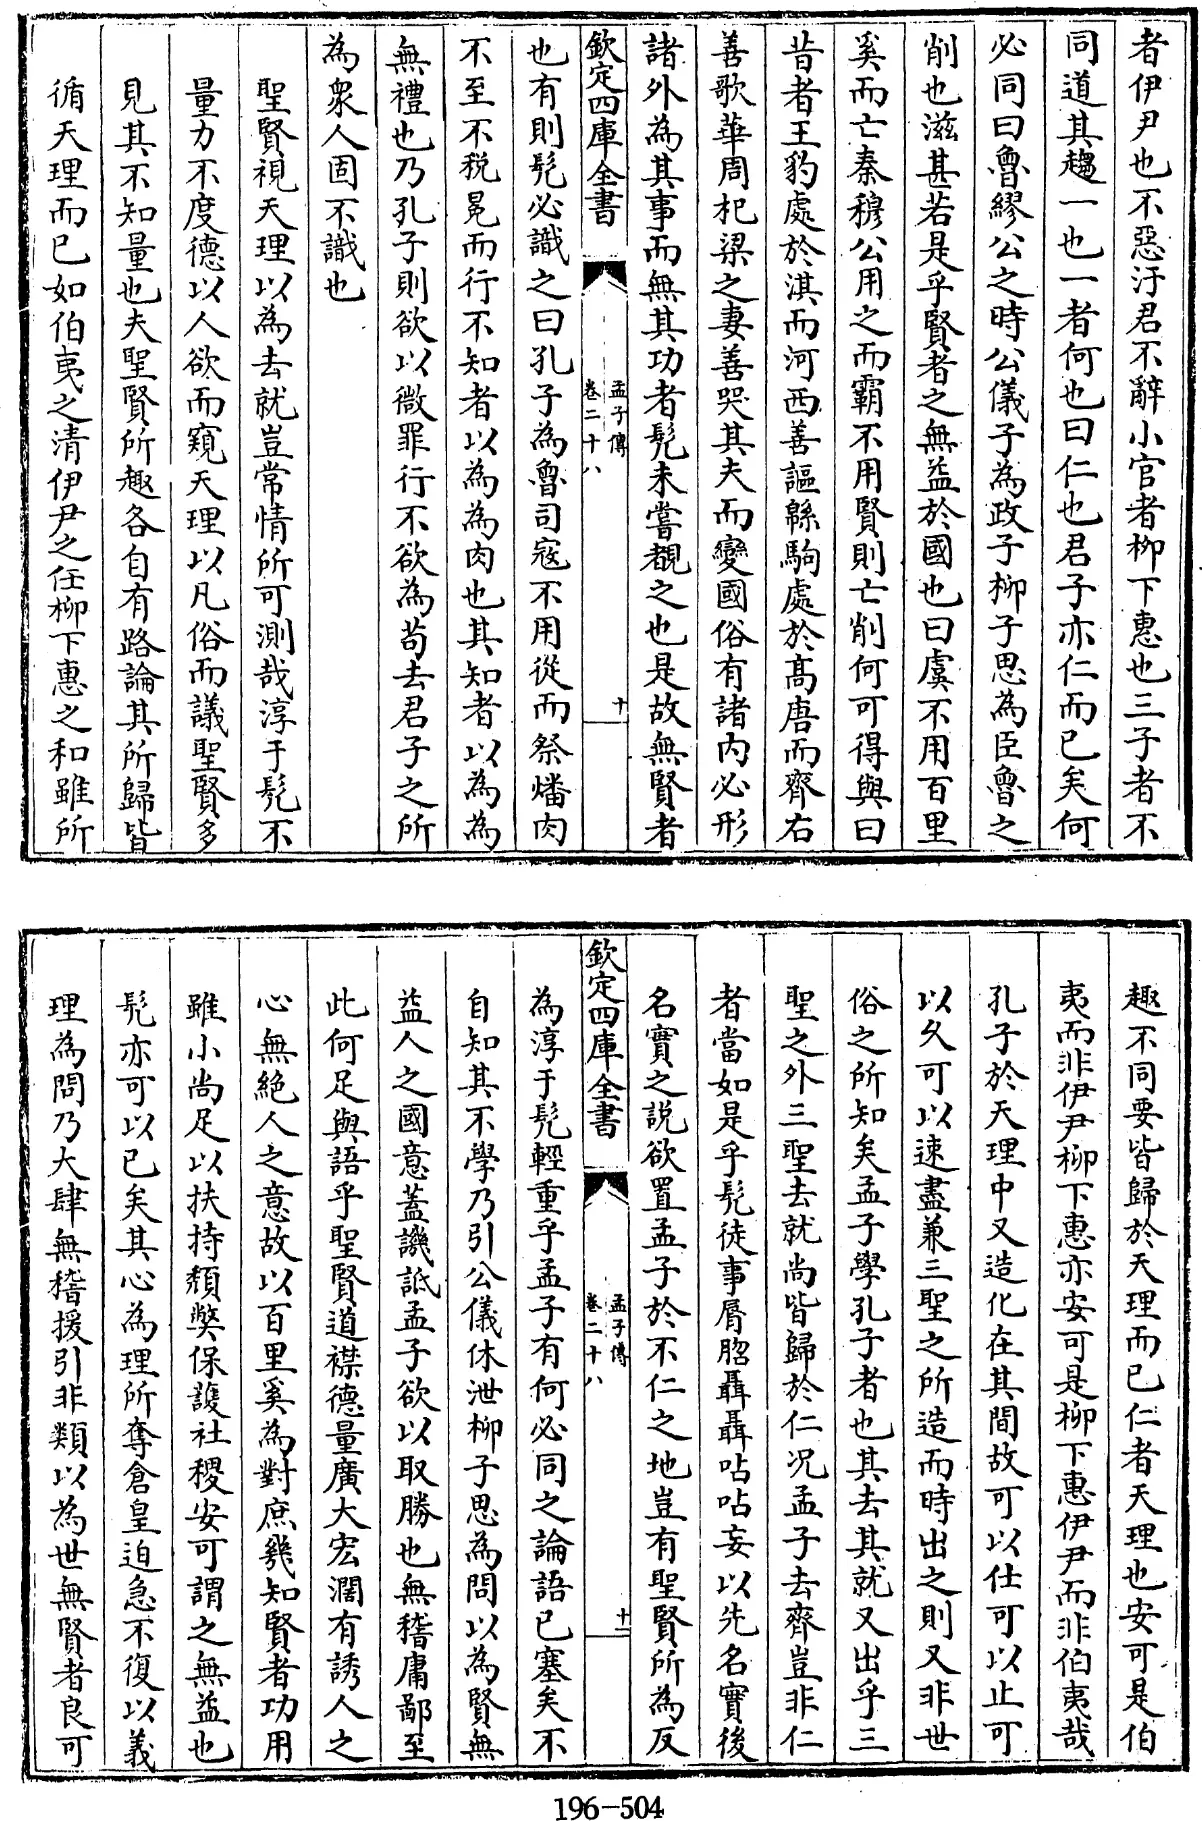 者伊尹也不惡汙君不辭小官者柳下惠也三子者不
同道其趨一也一者何也曰仁也君子亦仁而已矣何
必同曰魯繆公之時公儀子為政子柳子思為臣魯之
削也滋甚若是乎賢者之無益於國也曰虞不用百里
奚而亡秦穆公用之而霸不用賢則亡削何可得與曰
昔者王豹處於淇而河西善謳緜駒處於髙唐而齊右
善歌華周杞梁之妻善哭其夫而變國俗有諸内必形
諸外為其事而無其功者髠未嘗覩之也是故無賢者
欽定四庫全書
孟子傳
卷二十八
十
也有則髠必識之曰孔子為魯司寇不用從而祭燔肉
不至不税冕而行不知者以為為肉也其知者以為為
無禮也乃孔子則欲以微罪行不欲為茍去君子之所
為衆人固不識也
聖賢視天理以為去就豈常情所可測哉淳于髠不
量力不度德以人欲而窺天理以凡俗而議聖賢多
見其不知量也夫聖賢所趣各自有路論其所歸皆
循天理而已如伯夷之清伊尹之任柳下惠之和雖所
趣不同要皆歸於天理而已仁者天理也安可是伯
夷而非伊尹柳下惠亦安可是柳下惠伊尹而非伯夷哉
孔子於天理中又造化在其間故可以仕可以止可
以久可以速盡兼三聖之所造而時出之則又非世
俗之所知矣孟子學孔子者也其去其就又出乎三
聖之外三聖去就尚皆歸於仁况孟子去齊豈非仁
者當如是乎髠徒事脣㗋聶聶呫呫妄以先名實後
名實之説欲置孟子於不仁之地豈有聖賢所為反
欽定四庫全書
孟子傳
卷二十八
十一
為淳于髠輕重乎孟子有何必同之論語已塞矣不
自知其不學乃引公儀休泄柳子思為問以為賢無
益人之國意蓋譏詆孟子欲以取勝也無稽庸鄙至
此何足與語乎聖賢道襟德量廣大宏濶有誘人之
心無絶人之意故以百里奚為對庶幾知賢者功用
雖小尚足以扶持頽獘保護社稷安可謂之無益也
髠亦可以已矣其心為理所奪倉皇迫急不復以義
理為問乃大肆無稽援引非類以為世無賢者良可
196-504